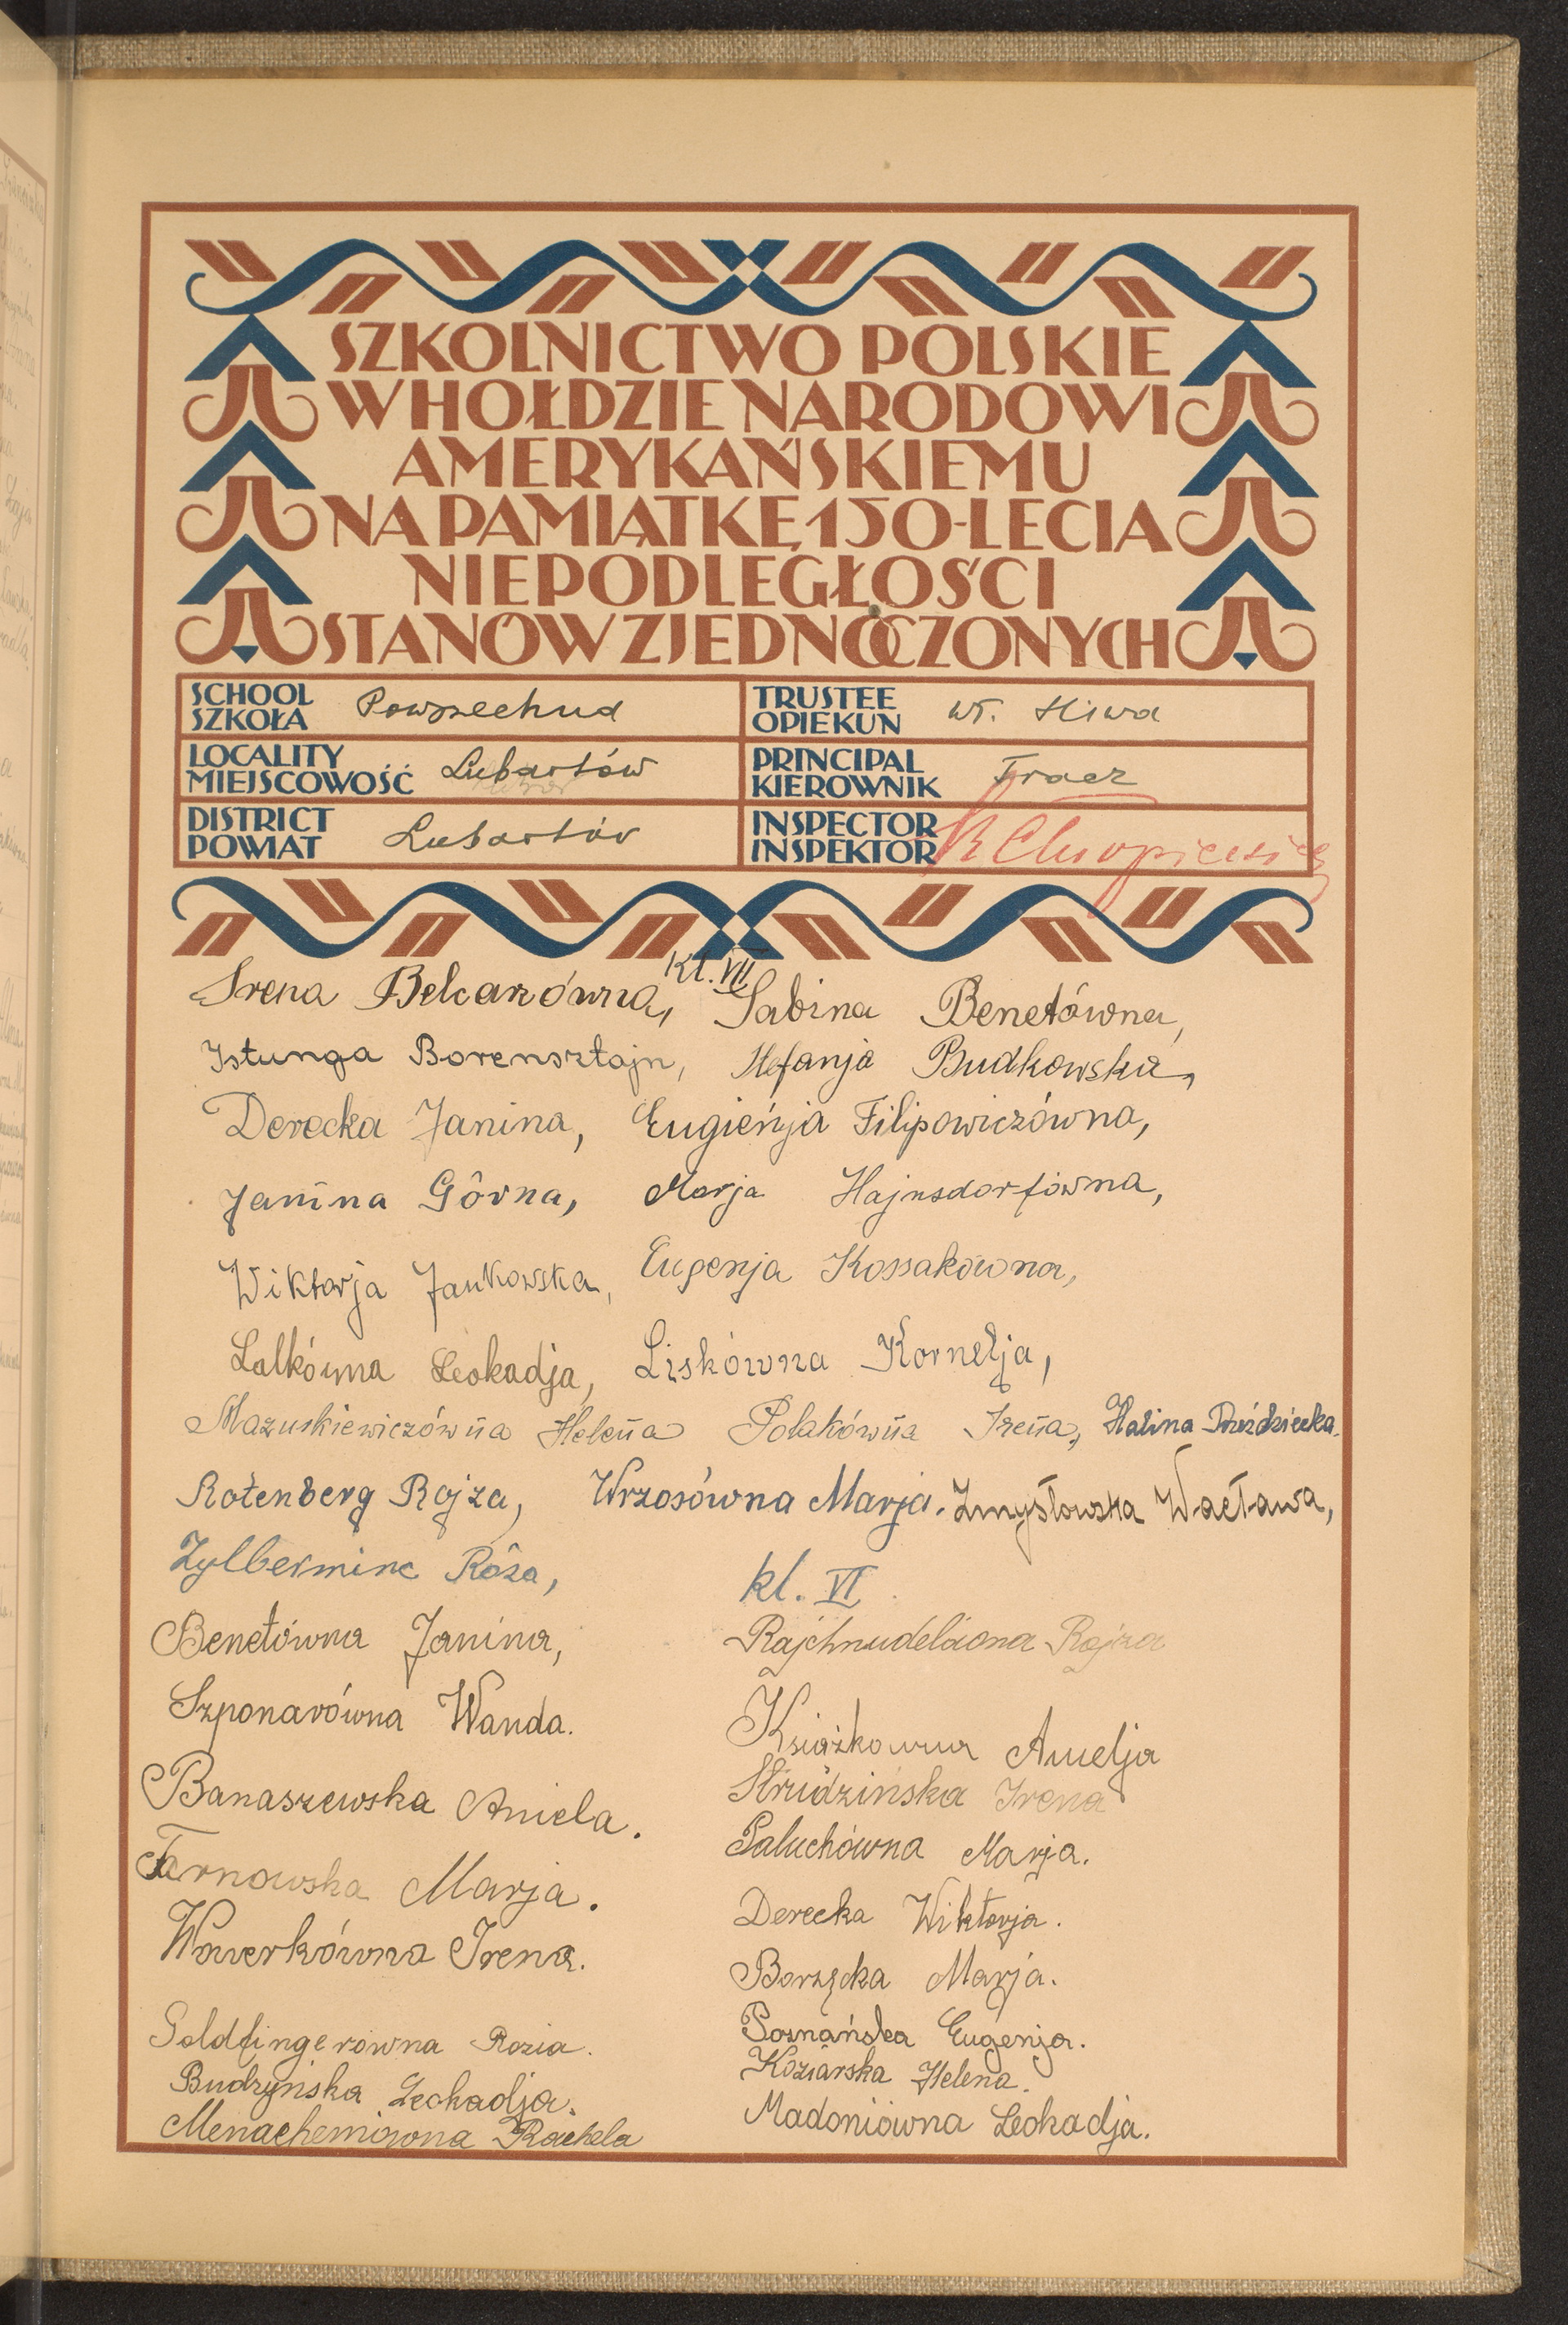 SZKOLNICTWO POLSKIE
W HOŁDZIE NARODOWI
AMERYKAŃSKIEMU
NA PAMIĄTKĘ 150-LECIA
NIEPODLEGŁOŚCI
STANÓW ZJEDNOCZONYCH
SCHOOL
SZKOŁA Powszechna
TRUSTEE
OPIEKUN Wł. Hiwa
LOCALITY
MIEJSCOWOŚĆ Lubartów
PRINCIPAL
KIEROWNIK Tracz
DISTRICT
POWIAT Lubartów
INSPECTOR
INSPEKTOR
kl. VII
Irena Belcarzówna, Sabina Benetówna,
Borensztajn, Stefanja Budkowska,
Derecka Janina, Eugieńja Filipowiczówna,
Janina Górna, Marja Hajnsdorfówna,
Wiktorja Jankowska, Eugenja Kossakówna,
Lalkówna Leokadja, Liskówna Kornelja,
Mazurkiewiczówna Helena Polakówna Irena, Halina
Rotenberg Rojza, Wrzosówna Marja. Zmysłowska Wacława,
Zylberminc Róża,
kl. VI
Benetówna Janina,
Rajchnudelówna Rojza
Szponarówna Wanda.
Książkówna Amelja
Banaszewska Aniela.
Strudzińska Irena
Tarnowska Marja.
Paluchówna Marja.
Wawerkówna Irena.
Derecka Wiktorja.
Borzęcka Marja.
Goldfingerówna Rozia.
Poznańska Eugenja.
Budzyńska Leokadja.
Koziarska Helena.
Menachemiówna Rachela
Madoniówna Leokadja.